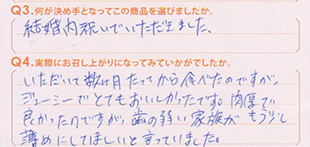 Q3.何が決め手となってこの商品を選びましたか。
結婚内祝いでいただきました。
Q4.実際にお召し上がりになってみていかがでしたか。
いただいて数ヶ月たってから食べたのですが、
ジューシーでとてもおいしかったです。肉厚で
良かったのですが、歯の弱い家族がもう少し
薄めにしてほしいと言っていました。